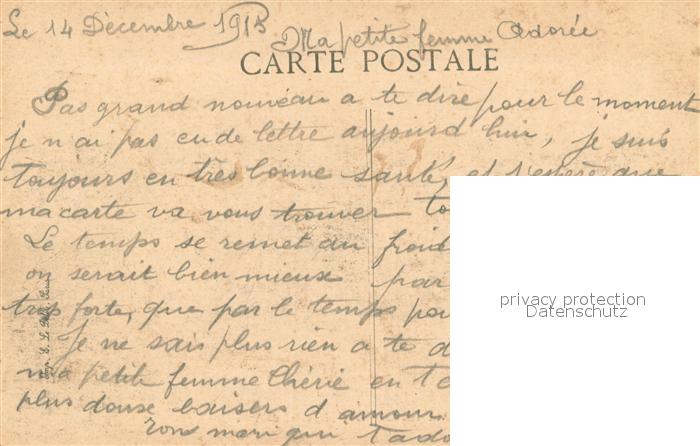 Le 14 Décembre 1915
Ma petite femme Adorée
CARTE POSTALE
Pas grand nouveau a te dire pour le moment
je n ai pas eu de lettre aujourd hui, je suis
toujours en très bonne santé, et j'espère que
ma carte va vous trouver
Le temps se remet au froid
on serait bien mieux par
trop forte, que par le temps
Je ne sais plus rien a te d
ma petite femme Chérie en t
plus doux baisers d amour
Ton mari qui t'ado
privacy protection
Datenschutz